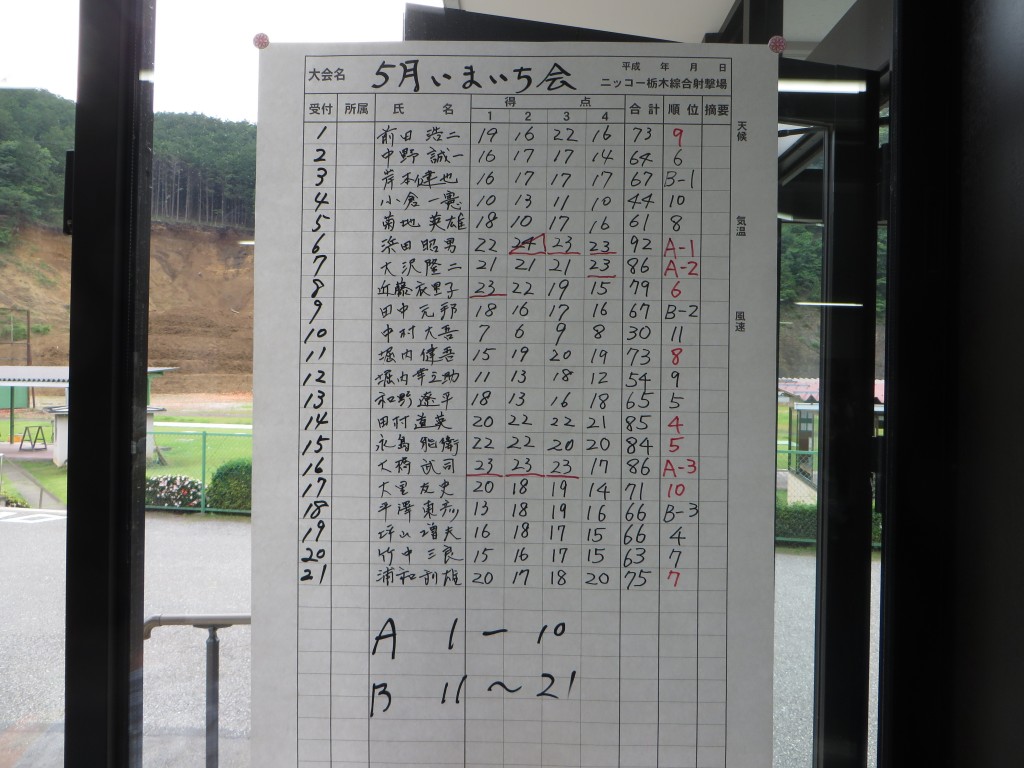 平成 年 月 日
大会名 5月いまいち会 ニッコー栃木綜合射撃場
受付 所属 氏 名 得 点 合計 順位 摘要
1 2 3 4
天候
気温
風速
1 前田 浩二 19 16 22 16 73 9
2 中野 誠一 16 17 17 14 64 6
3 岸本健也 16 17 17 17 67 B-1
4 小倉 一憲 10 13 11 10 44 10
5 菊地 英雄 18 10 17 16 61 8
6 浜田 昭男 22 24 23 23 92 A-1
7 大沢隆二 21 21 21 23 86 A-2
8 近藤衣里子 23 22 19 15 79 6
9 田中 元邦 18 16 17 16 67 B-2
10 中村 大吾 7 6 9 8 30 11
11 堀内健吾 15 19 20 19 73 8
12 堀内幸之助 11 13 18 12 54 9
13 和野 遼平 18 13 16 18 65 5
14 田村 直英 20 22 22 21 85 4
15 永島 能衛 22 22 20 20 84 5
16 大橋 司 23 23 23 17 86 A-3
17 大里 史 20 18 19 14 71 10
18 平澤 彦 13 18 19 16 66 B-3
19 坪山 増夫 16 18 17 15 66 4
20 竹中 三良 15 16 17 15 63 7
21 浦和 利雄 20 17 18 20 75 7
A 1 － 10
B 11 ～ 21